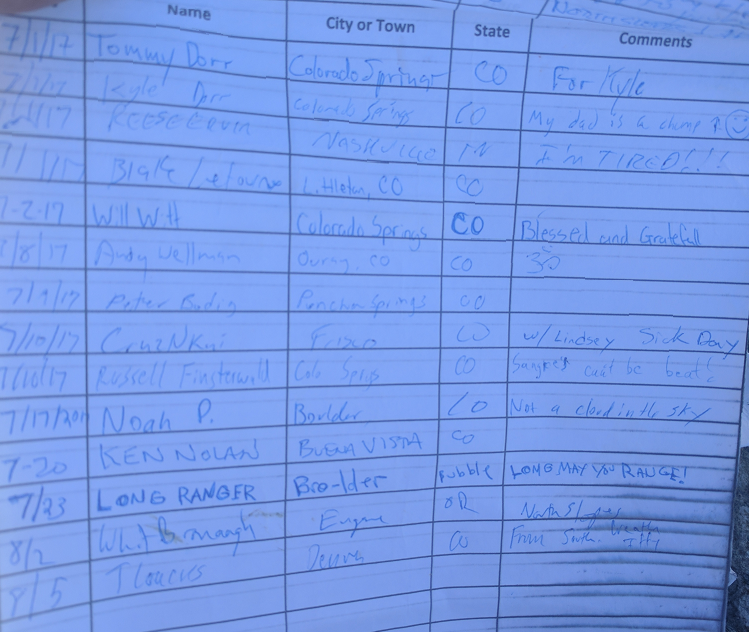 Name City or Town State Comments
7/1/17 Tommy Dorr Colorado Springs CO For Kyle
7/1/17 Kyle Dorr Colorado Springs CO My dad is a champ
/17 NASHVILLE TN I'm TIRED!!!
7/1/17 Blake Littleton, CO CO
7-2-17 Will Witt Colorado Springs CO Blessed and Gratefull
7/8/17 Andy Wellman Ouray, CO CO 30
7/9/17 Peter Poncha Springs CO
7/10/17 Frisco CO w/ Lindsey Sick Day
7/10/17 Russell Finsterwald Colo Sprgs CO Sangre's can't be beat!
7/17/2017 Noah P. Boulder CO Not a cloud in the sky
7-20 KEN NOLAN BUENA VISTA CO
7/23 LONG RANGER Bro-lder Rubble LONG MAY YOU RANGE!
8/2 Eugene OR North Slopes
From South.
8/5 Denver CO